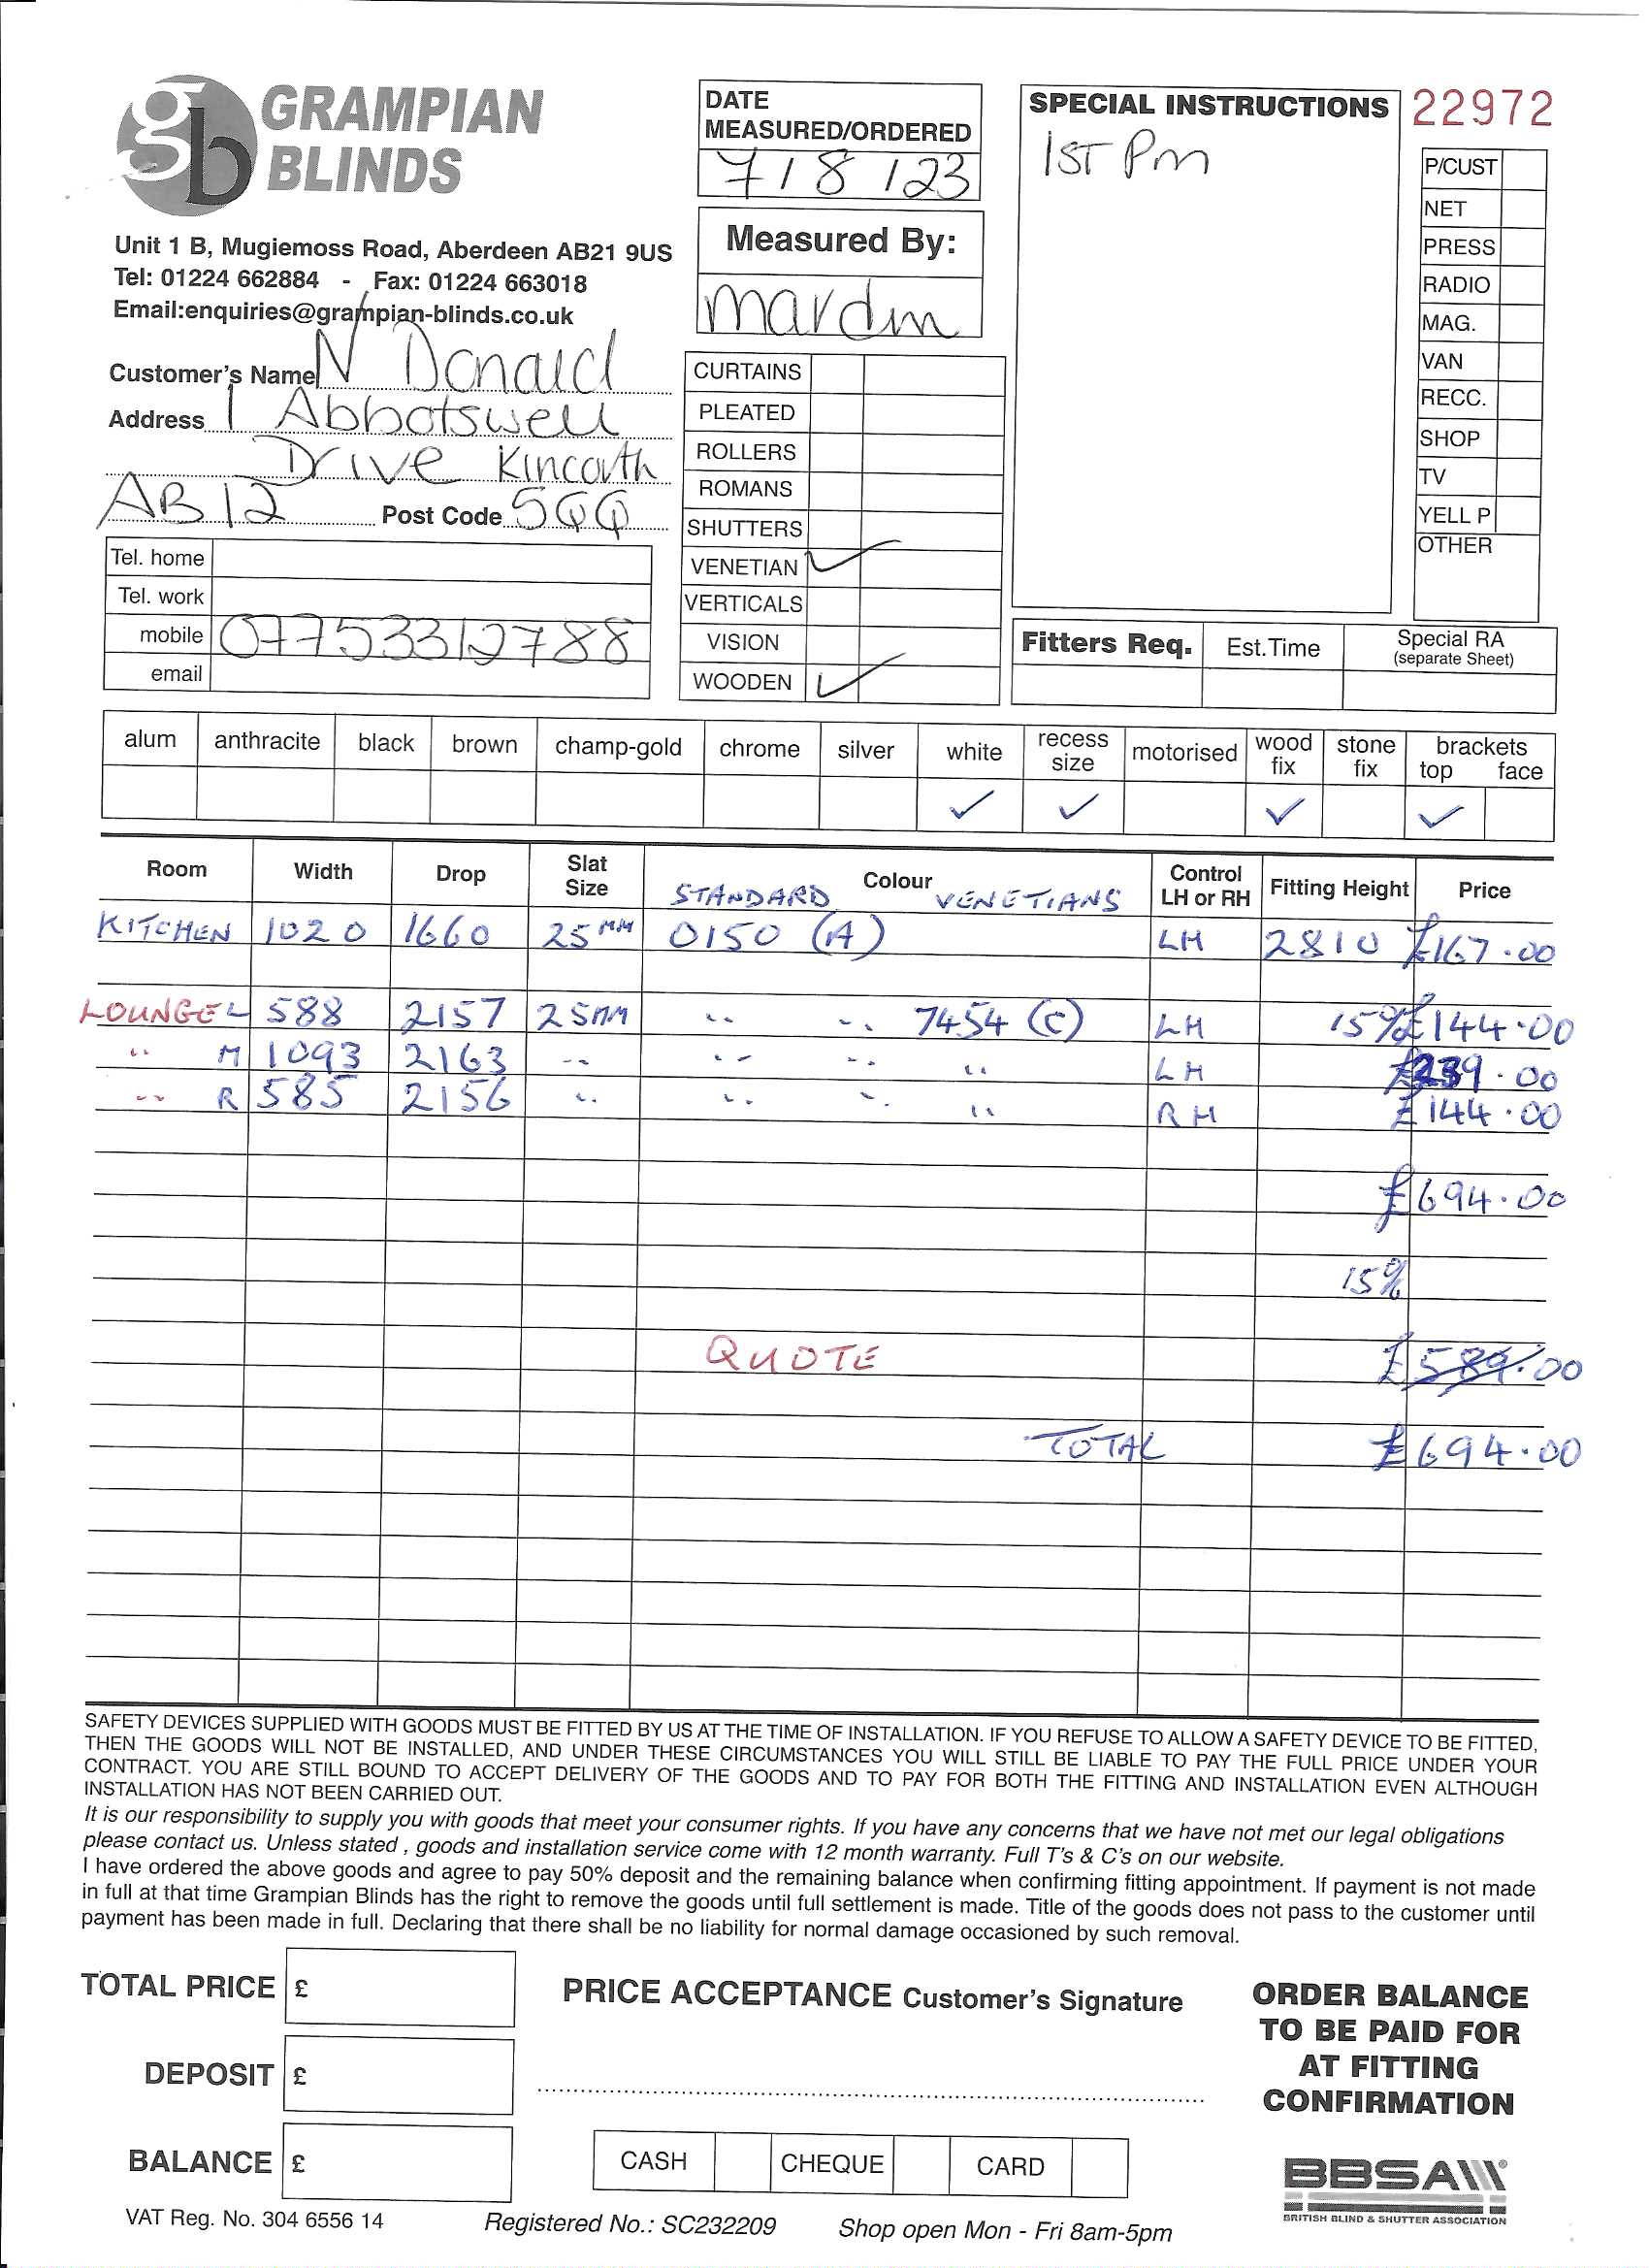 gb GRAMPIAN BLINDS
Unit 1 B, Mugiemoss Road, Aberdeen AB21 9US
Tel: 01224 662884 - Fax: 01224 663018
Email:enquiries@grampian-blinds.co.uk
Customer's Name N Donald
Address 1 Abbotswell
Drive Kincorth
AB12 Post Code 5QQ
Tel. home
Tel. work
mobile 07753312788
email
DATE MEASURED/ORDERED
7/8/23
Measured By:
CURTAINS
PLEATED
ROLLERS
ROMANS
SHUTTERS
VENETIAN ✓
VERTICALS
VISION
WOODEN ✓
SPECIAL INSTRUCTIONS
1ST PM
22972
P/CUST
NET
PRESS
RADIO
MAG.
VAN
RECC.
SHOP
TV
YELL P
OTHER
Fitters Req. Est.Time Special RA (separate Sheet)
alum anthracite black brown champ-gold chrome silver white recess size motorised wood fix stone fix brackets top face
✓ ✓ ✓ ✓
Room Width Drop Slat Size Colour Control LH or RH Fitting Height Price
STANDARD VENETIANS
KITCHEN 1020 1660 25MM 0150 (A) LH 2810 £167.00
LOUNGE L 588 2157 25MM " " 7454 (C) LH 15% £144.00
" M 1093 2163 " " " " LH £239.00
" R 585 2156 " " " " RH £144.00
£694.00
15%
QUOTE £589.00
TOTAL £694.00
SAFETY DEVICES SUPPLIED WITH GOODS MUST BE FITTED BY US AT THE TIME OF INSTALLATION. IF YOU REFUSE TO ALLOW A SAFETY DEVICE TO BE FITTED,
THEN THE GOODS WILL NOT BE INSTALLED, AND UNDER THESE CIRCUMSTANCES YOU WILL STILL BE LIABLE TO PAY THE FULL PRICE UNDER YOUR
CONTRACT. YOU ARE STILL BOUND TO ACCEPT DELIVERY OF THE GOODS AND TO PAY FOR BOTH THE FITTING AND INSTALLATION EVEN ALTHOUGH
INSTALLATION HAS NOT BEEN CARRIED OUT.
It is our responsibility to supply you with goods that meet your consumer rights. If you have any concerns that we have not met our legal obligations
please contact us. Unless stated , goods and installation service come with 12 month warranty. Full T's & C's on our website.
I have ordered the above goods and agree to pay 50% deposit and the remaining balance when confirming fitting appointment. If payment is not made
in full at that time Grampian Blinds has the right to remove the goods until full settlement is made. Title of the goods does not pass to the customer until
payment has been made in full. Declaring that there shall be no liability for normal damage occasioned by such removal.
TOTAL PRICE £
DEPOSIT £
BALANCE £
PRICE ACCEPTANCE Customer's Signature
CASH CHEQUE CARD
ORDER BALANCE
TO BE PAID FOR
AT FITTING
CONFIRMATION
BBSA
BRITISH BLIND & SHUTTER ASSOCIATION
VAT Reg. No. 304 6556 14 Registered No.: SC232209 Shop open Mon - Fri 8am-5pm